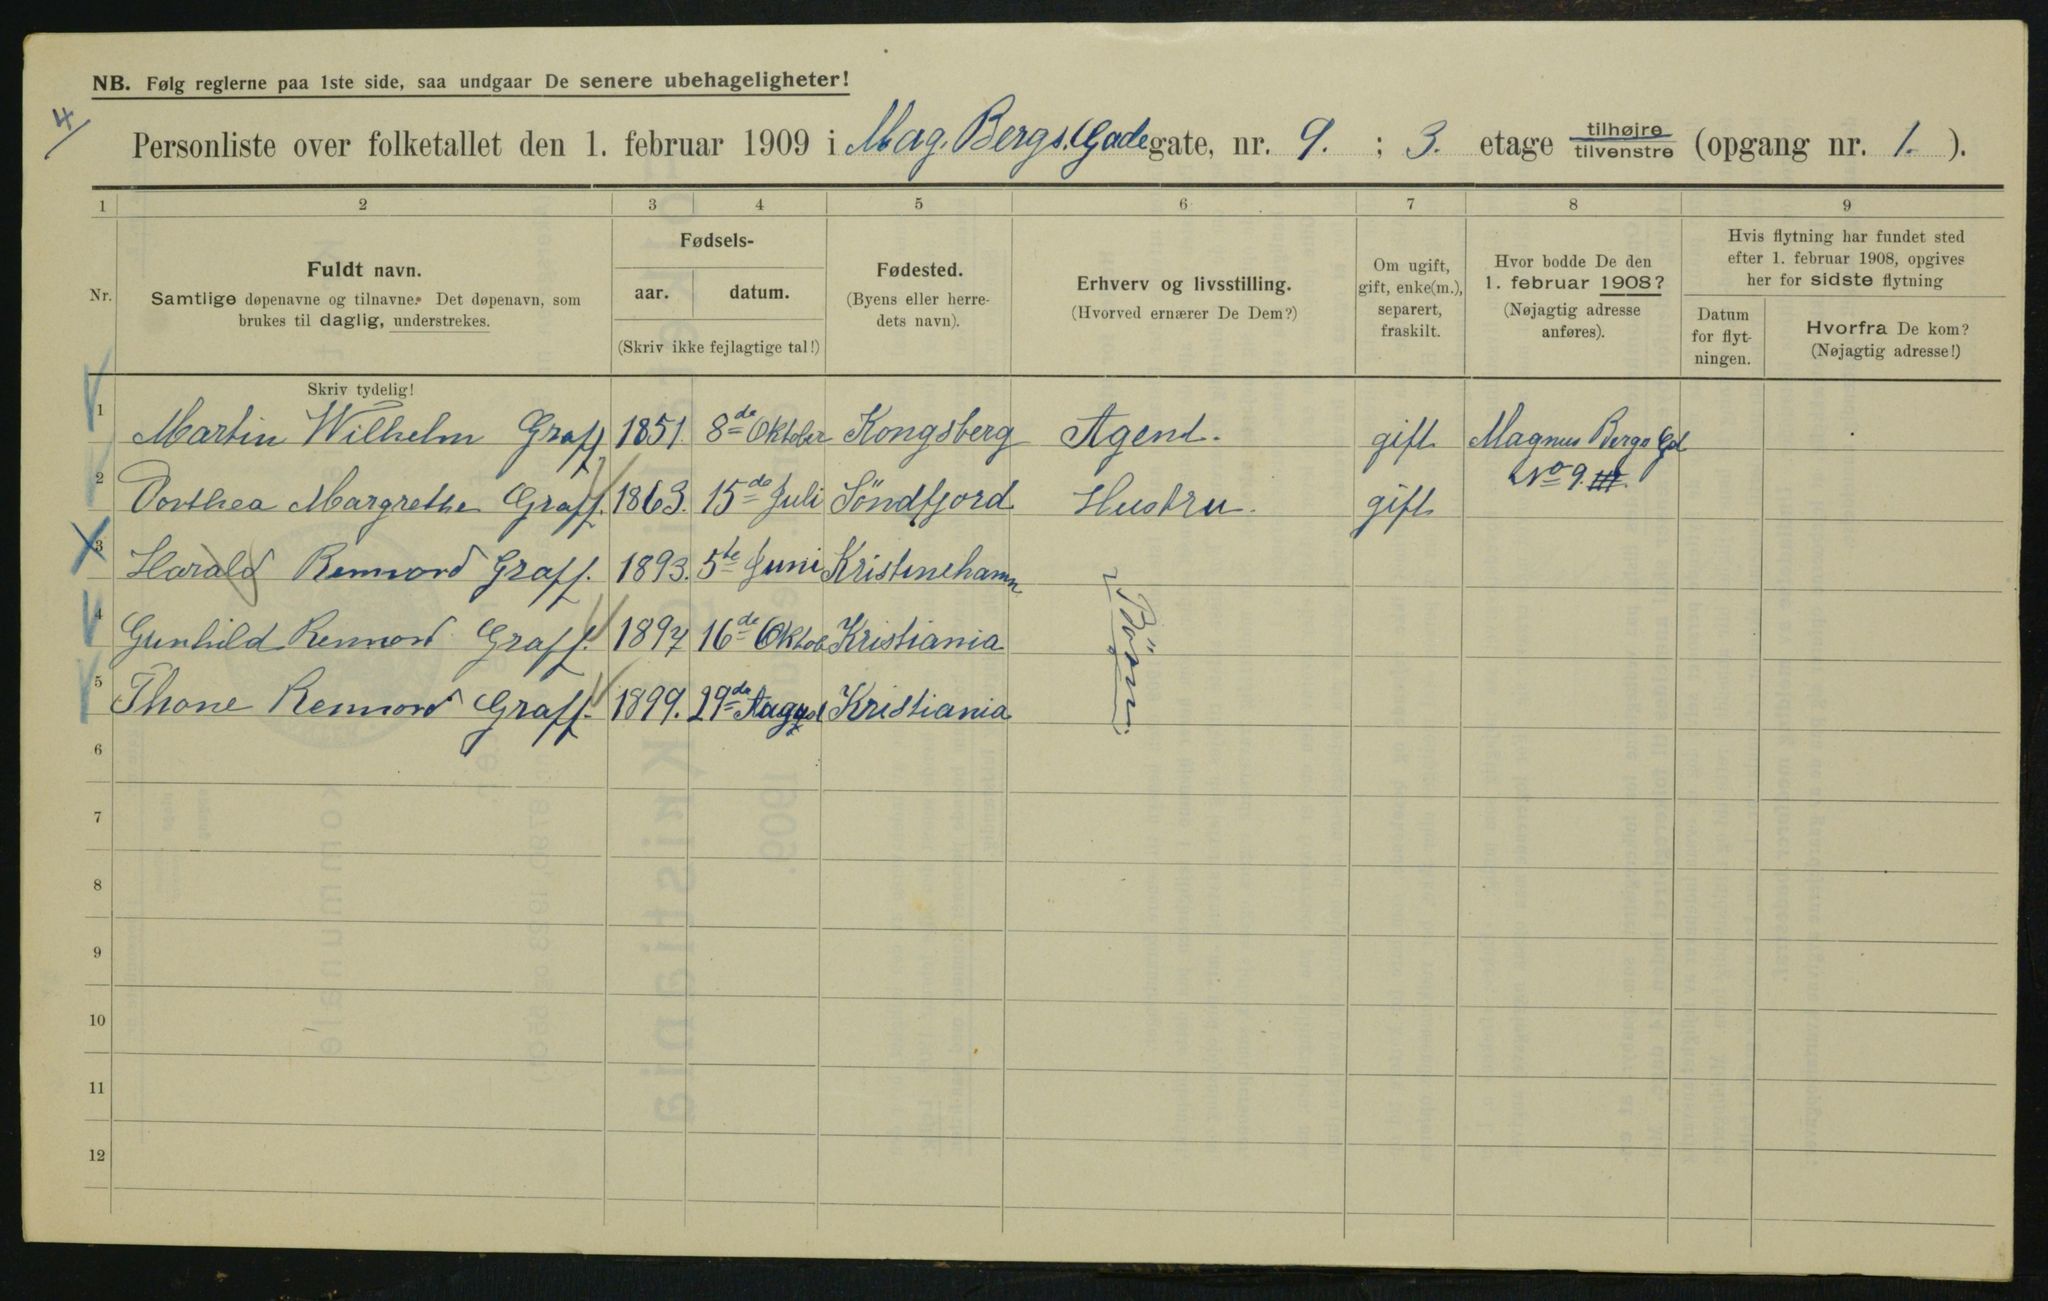 NB. Følg reglerne paa 1ste side, saa undgaar De senere ubehageligheter!
4/
Personliste over folketallet den 1. februar 1909 i Mag. Bergs. Gade gate, nr. 9. ; 3. etage tilhøjre tilvenstre (opgang nr. 1. ).
1 2 3 4 5 6 7 8 9
Nr.
Fuldt navn.
Samtlige døpenavne og tilnavne. Det døpenavn, som
brukes til daglig, understrekes.
Fødsels-
aar. datum.
(Skriv ikke fejlagtige tal!)
Fødested.
(Byens eller herre-
dets navn).
Erhverv og livsstilling.
(Hvorved ernærer De Dem?)
Om ugift,
gift, enke(m.),
separert,
fraskilt.
Hvor bodde De den
1. februar 1908?
(Nøjagtig adresse
anføres).
Hvis flytning har fundet sted
efter 1. februar 1908, opgives
her for sidste flytning
Datum
for flyt-
ningen.
Hvorfra De kom?
(Nøjagtig adresse!)
Skriv tydelig!
1 Martin Wilhelm Graff 1851. 8de Oktober Kongsberg Agent. gift Magnus Bergs Gd
No 9. III.
2 Dorthea Margrethe Graff. 1863. 15de Juli Söndfjord Hustru. gift
3 Harald Rennord Graff. 1893. 5te Juni Kristinehamn
4 Gunhild Rennord Graff. 1897 16de Oktob Kristiania
5 Thone Rennord Graff. 1899. 29de August Kristiania
Börn
6
7
8
9
10
11
12